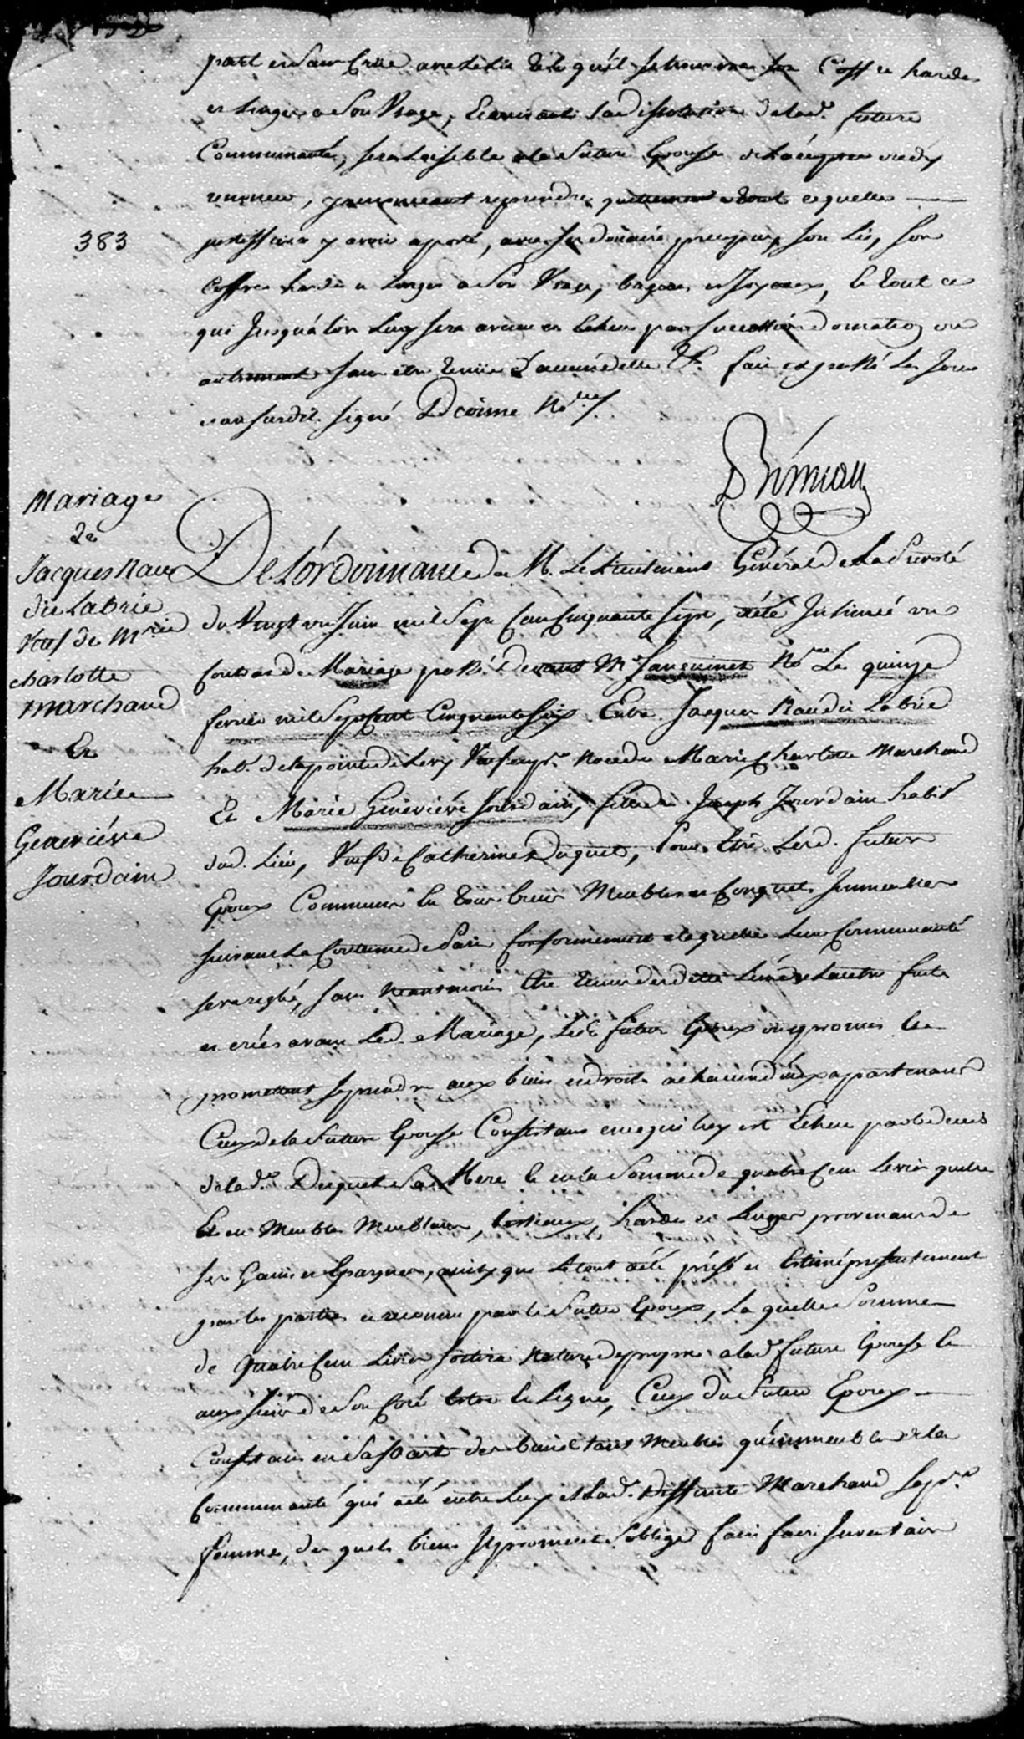 part et sans Crüe avec le lit tel qu'il se trouvera son Coffre hardes
et linges a Son Usage, Et avenant la dissolution de lad. future
Communauté, sera loisible a la future Epouse de l'accepter ou d'y
renoncer, et renonceant reprendre quittement tout ce quelle
383
justiffira y avoir aporté, avec son doüaire preciput, son Lit, son
Coffre hardes et Linges a Son Usage, bagues et Joyaux, Et tout ce
qui Jusqu'alors luy sera avenu et Echeu par succession donation ou
autrement sans etre tenüe d'aucunes dettes &c. fait et passé les Jour
et an susdit. signé Decoime Nre
Mariage
de
Jacques Nau
dit Labrie
veuf de Mrie
charlotte
marchand
Et
Marie
Geneviéve
Jourdain
De L'órdonnance de M. Le Lieutenant Genéral de La Prevoté
du Vingt un Juin mil Sept Cent Cinquante Sept, a été Insinué un
Contrat de Mariage passé Devant Me Sanguinet Nre Le quinze
fevrier mil Sept Cent Cinquante six, Entre Jacques Nau dit Labrie
habt. de la pointe de Levy Veuf de Marie Charlotte Marchand
Et Marie Geneviéve Jourdain, fille de Joseph Jourdain habit
dud. Lieu, Veuf de Catherine Duquet, Pour Etre Lesd. futurs
Epoux Communs En tous biens Meubles et Conquets Immeubles
suivant La Coutume de Paris Conformement a laquelle Leur Communauté
sera reglé, sans neantmoins Etre tenus des dettes L'un de L'autre faites
et créés avant Led. Mariage, Lesd. futurs Epoux ont promis et
promettent se prendre aux biens et droits a chacun d'eux appartenant
Ceux de la future Epouse Consistant en ce qui luy est Echeu par le deces
de lad. Duquet Sa Mere Et en la Somme de quatre Cent Livres
en Meubles Meublans, bestiaux, hardes et Linges provenant de
ses Gains et Epargnes, ainsy que le tout a été prisé et Estimé presentement
par les parties et reconnu par le futur Epoux, La quelle Somme
de quatre Cent Livres sortira nature de propre a lad. future Epouse Et
aux siens de Son Coté et Ligne, Ceux du futur Epoux
Consistans en Sa part des biens tant Meubles qu'immeubles de la
Communauté qui a été entre Luy et lad. deffunte Marchand Sa pre.
femme, des quels biens Il promet et s'oblige faire faire Inventaire